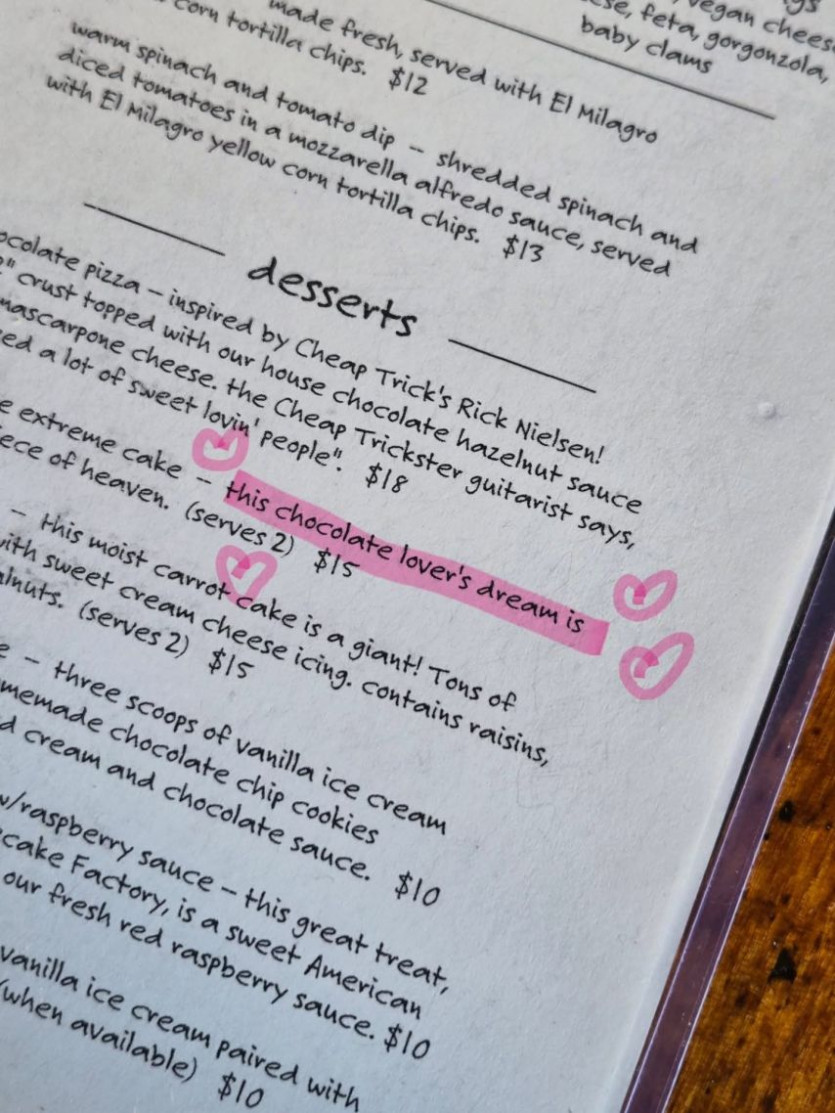 vegan cheese
feta, gorgonzola,
baby clams
made fresh, served with El Milagro
corn tortilla chips. $12
warm spinach and tomato dip – shredded spinach and
diced tomatoes in a mozzarella alfredo sauce, served
with El Milagro yellow corn tortilla chips. $13
desserts
pizza – inspired by Cheap Trick's Rick Nielsen!
crust topped with our house chocolate hazelnut sauce
mascarpone cheese. the Cheap Trickster guitarist says,
a lot of sweet lovin' people". $18
extreme cake – this chocolate lover's dream is
of heaven. (serves 2) $15
– this moist carrot cake is a giant! Tons of
with sweet cream cheese icing. contains raisins,
(serves 2) $15
– three scoops of vanilla ice cream
chocolate chip cookies
cream and chocolate sauce. $10
w/raspberry sauce – this great treat,
Factory, is a sweet American
our fresh red raspberry sauce. $10
vanilla ice cream paired with
(when available) $10